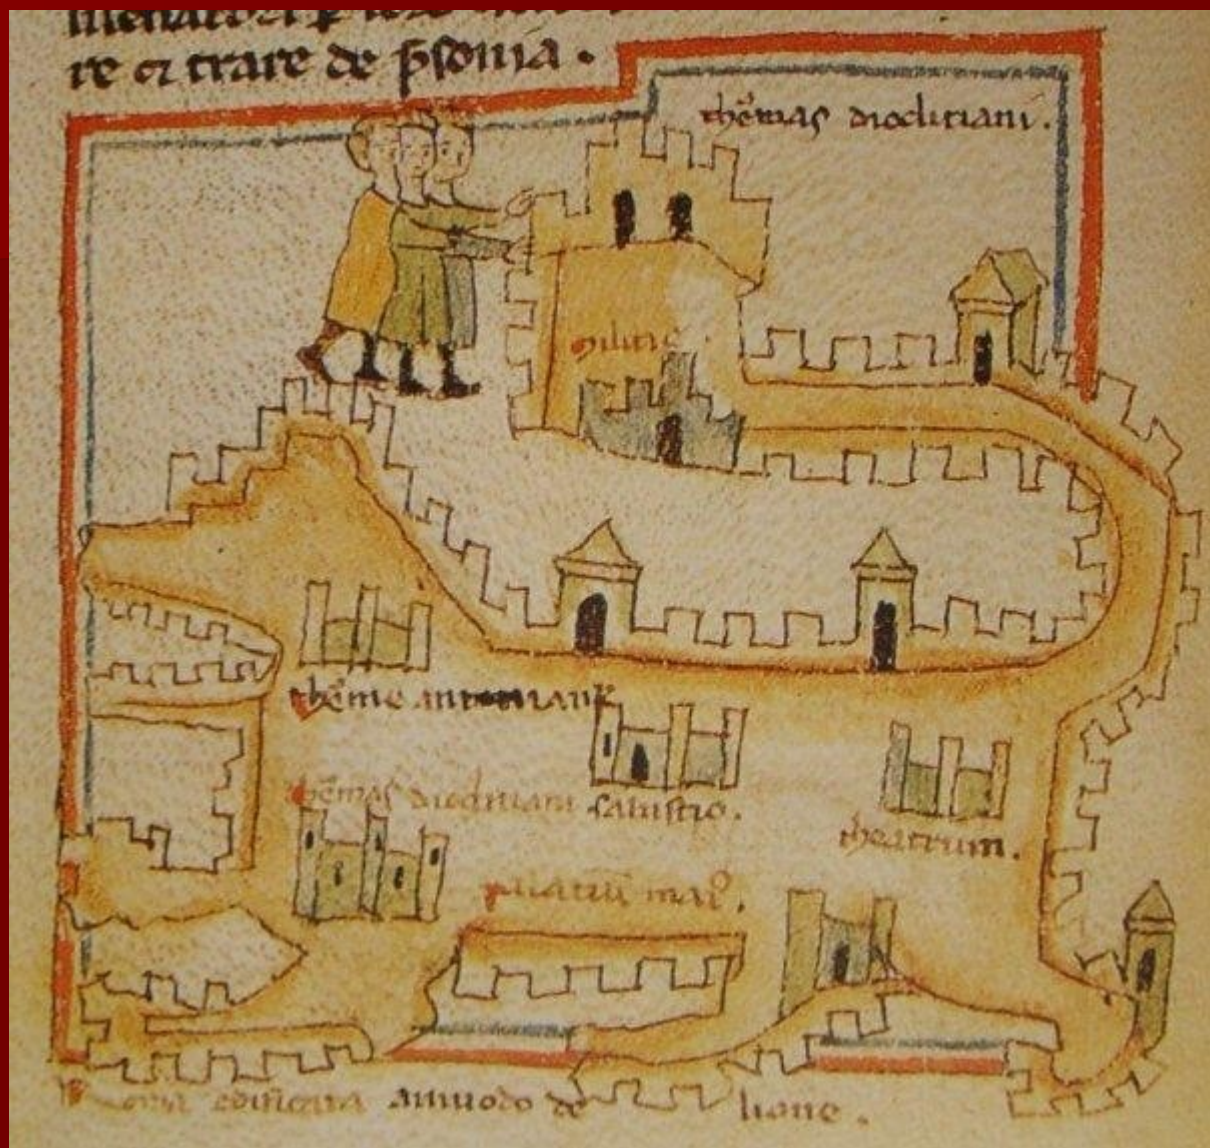 re et trare de p̄sonia.
thẽmas dioclitiani.
militie
thẽme antoniane
thẽmas dioclitiani salustio.
theatrum.
palatiũ mai⁹.
edificata amodo de lione.